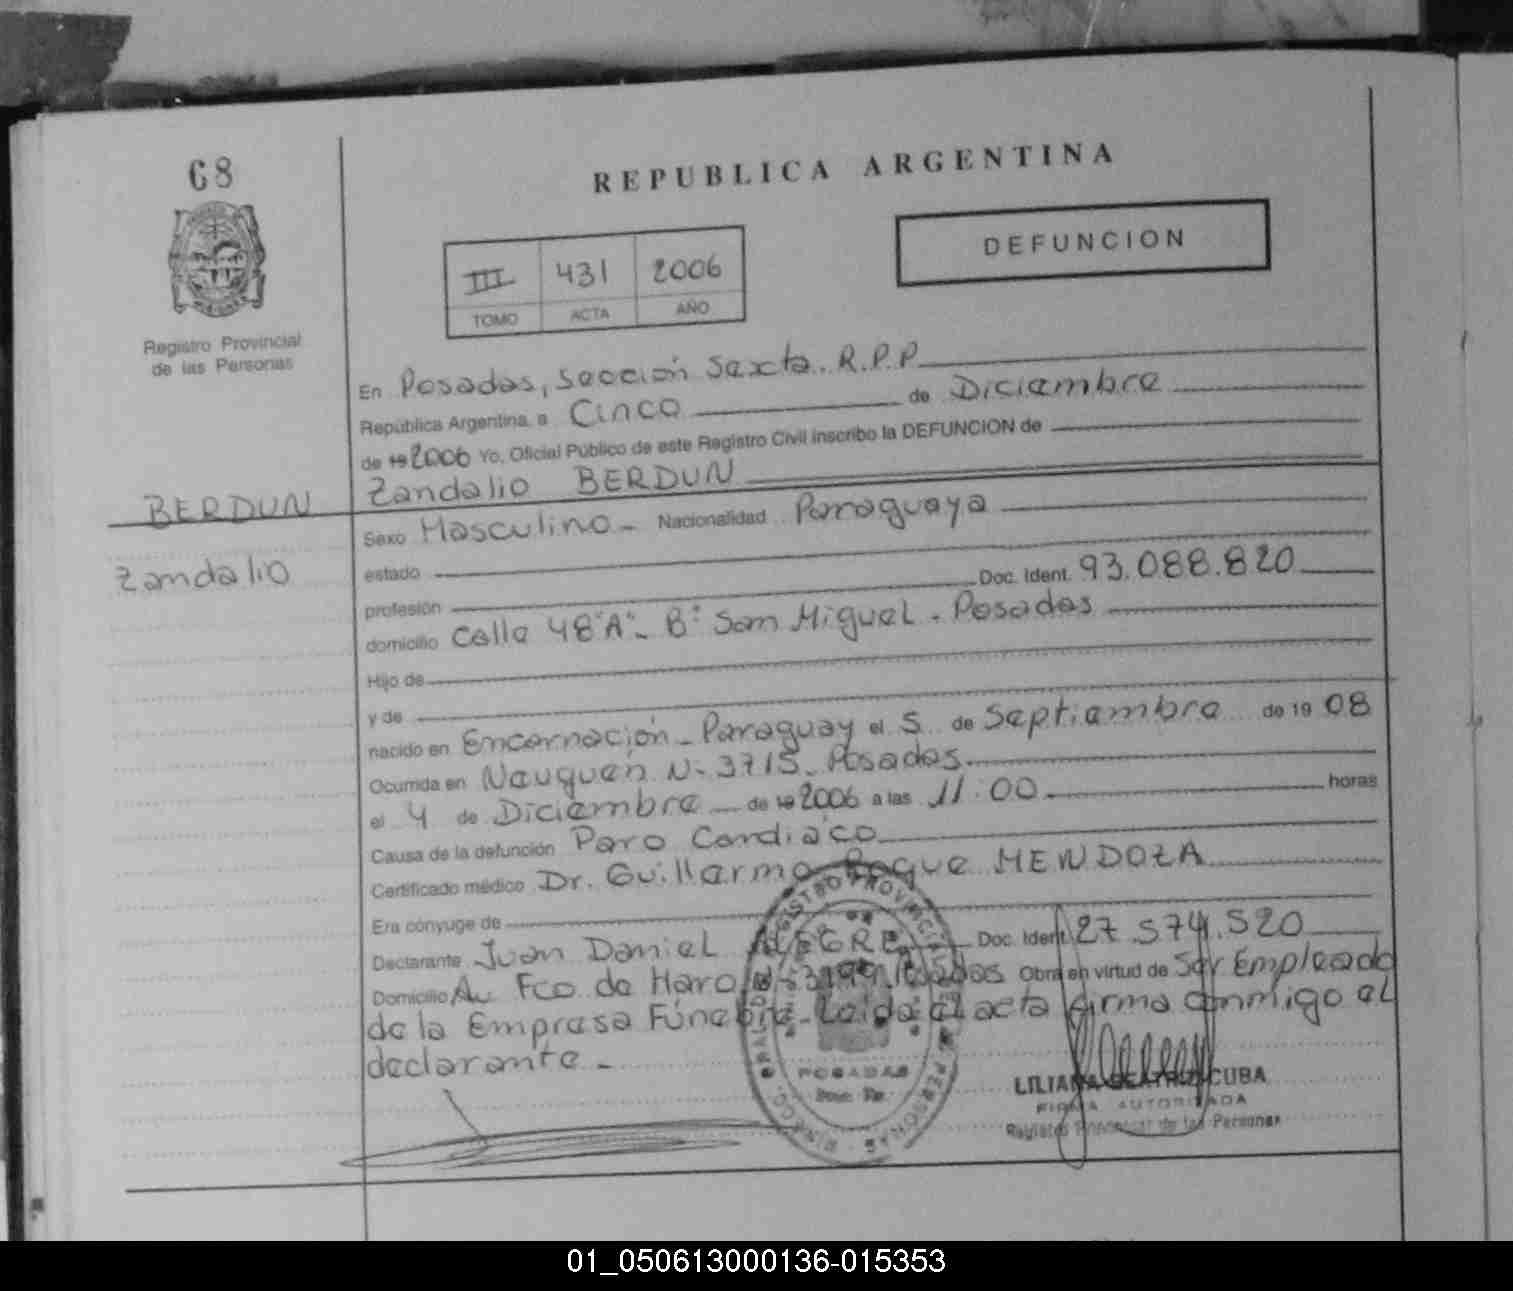 68
REPUBLICA ARGENTINA
DEFUNCION
III 431 2006
TOMO ACTA AÑO
Registro Provincial
de las Personas
En Posadas, Sección Sexta. R.P.P
República Argentina, a Cinco de Diciembre
de 19 2006 Yo, Oficial Público de este Registro Civil inscribo la DEFUNCION de
BERDUN
Zandalio BERDUN
Zandalio
Sexo Masculino - Nacionalidad Paraguaya
estado
Doc. Ident. 93.088.820
profesión
domicilio Calle 48 "A" - Bº San Miguel - Posadas
Hijo de
y de
nacido en Encarnación - Paraguay el 5 de Septiembre de 19 08
Ocurrida en Neuquen Nº 3715 - Posadas
el 4 de Diciembre de 19 2006 a las 11:00 horas
Causa de la defunción Paro Cardíaco
Certificado médico Dr. Guillermo Roque MENDOZA
Era cónyuge de
Declarante Juan Daniel ALEGRE Doc. Ident. 27.574.520
Domicilio Av. Fco. de Haro Posadas Obra en virtud de Ser Empleado
de la Empresa Fúnebre - Leída el acta firma conmigo el
declarante -
REGISTRO PROVINCIAL
PERSONAS
POSADAS
LILIANA BEATRIZ CUBA
FIRMA AUTORIZADA
Registro Provincial de las Personas
01_050613000136-015353